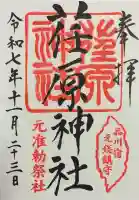 奉拝
荏原神社
荏原神社
品川宿
元准勅祭社
令和七年十一月二十三日